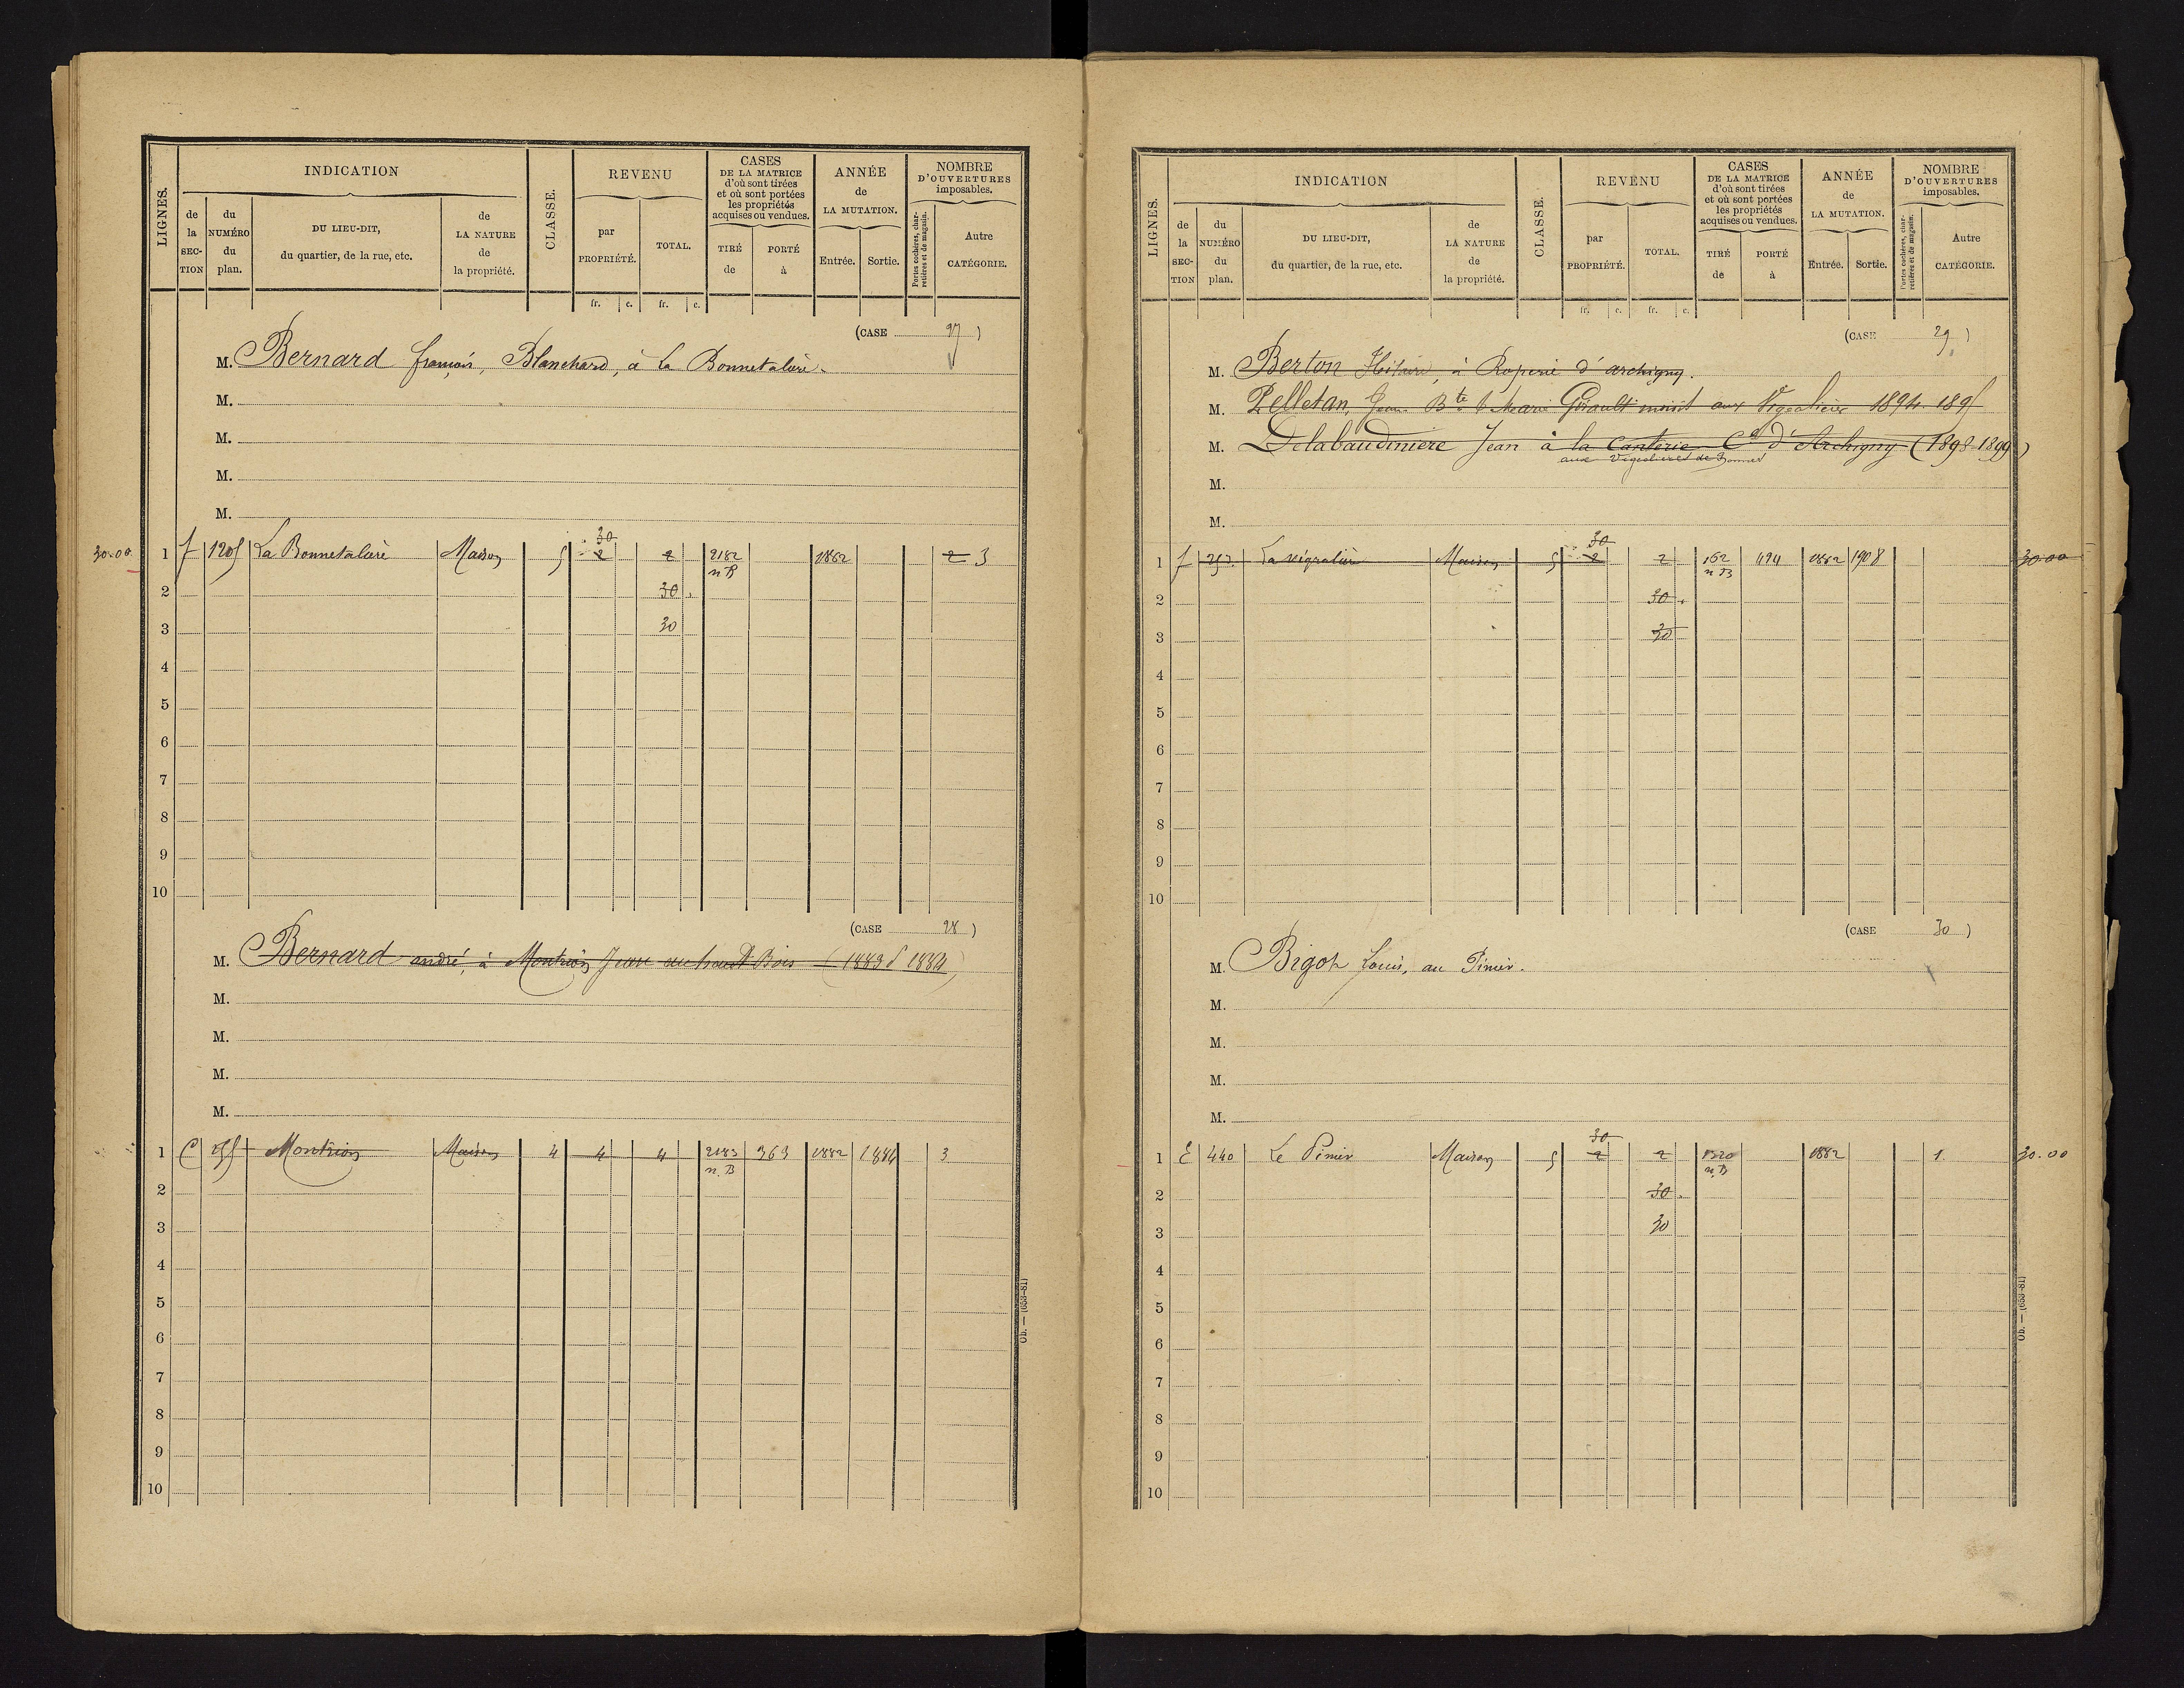 INDICATION
REVENU
CASES
DE LA MATRICE
d'où sont tirées
et où sont portées
les propriétés
acquises ou vendues.
ANNÉE
de
LA MUTATION.
NOMBRE
D'OUVERTURES
imposables.
LIGNES.
de
la
SEC-
TION
du
NUMÉRO
du
plan.
DU LIEU-DIT,
du quartier, de la rue, etc.
de
LA NATURE
de
la propriété.
CLASSE.
par
PROPRIÉTÉ.
TOTAL.
TIRÉ
de
PORTÉ
à
Entrée.
Sortie.
Portes cochères, char-
retières et de magasin.
Autre
CATÉGORIE.
fr. c. fr. c.
(CASE 27)
M. Bernard françois, Blanchard, à la Bonnetalière.
M.
M.
M.
M.
30.00 1 f 1205 La Bonnetalière Maison 5 2 30 2 2182 n B 1882 2 3
2 30
3 30
4
5
6
7
8
9
10
(CASE 28)
M. Bernard andré, à Montrion Jean au haut Bois (1883 1884)
M.
M.
M.
M.
1 C Montrion Maison 4 4 4 2183 n. B 363 1882 1884 3
2
3
4
5
6
7
8
9
10
Ob. — (653-81)
INDICATION
REVENU
CASES
DE LA MATRICE
d'où sont tirées
et où sont portées
les propriétés
acquises ou vendues.
ANNÉE
de
LA MUTATION.
NOMBRE
D'OUVERTURES
imposables.
LIGNES.
de
la
SEC-
TION
du
NUMÉRO
du
plan.
DU LIEU-DIT,
du quartier, de la rue, etc.
de
LA NATURE
de
la propriété.
CLASSE.
par
PROPRIÉTÉ.
TOTAL.
TIRÉ
de
PORTÉ
à
Entrée.
Sortie.
Portes cochères, char-
retières et de magasin.
Autre
CATÉGORIE.
fr. c. fr. c.
(CASE 29)
M. Berton Hilaire, à d'archigny.
M. Pelletan, Jean Bte Marie Girault aux 1894 1895
M. Delabaudiniere Jean à la Canterie Cne d'Archigny (1898-1899)
aux de Bonnes
M.
M.
1 f Maison 5 2 30 2 162 n B 494 1882 1908 30.00
2 30
3 30
4
5
6
7
8
9
10
(CASE 30)
M. Bigot Louis, au Pinier.
M.
M.
M.
M.
1 E 440 Le Pinier Maison 5 2 30 2 1320 n. B 1882 1. 30.00
2 30
3 30
4
5
6
7
8
9
10
Ob. — (653-81)